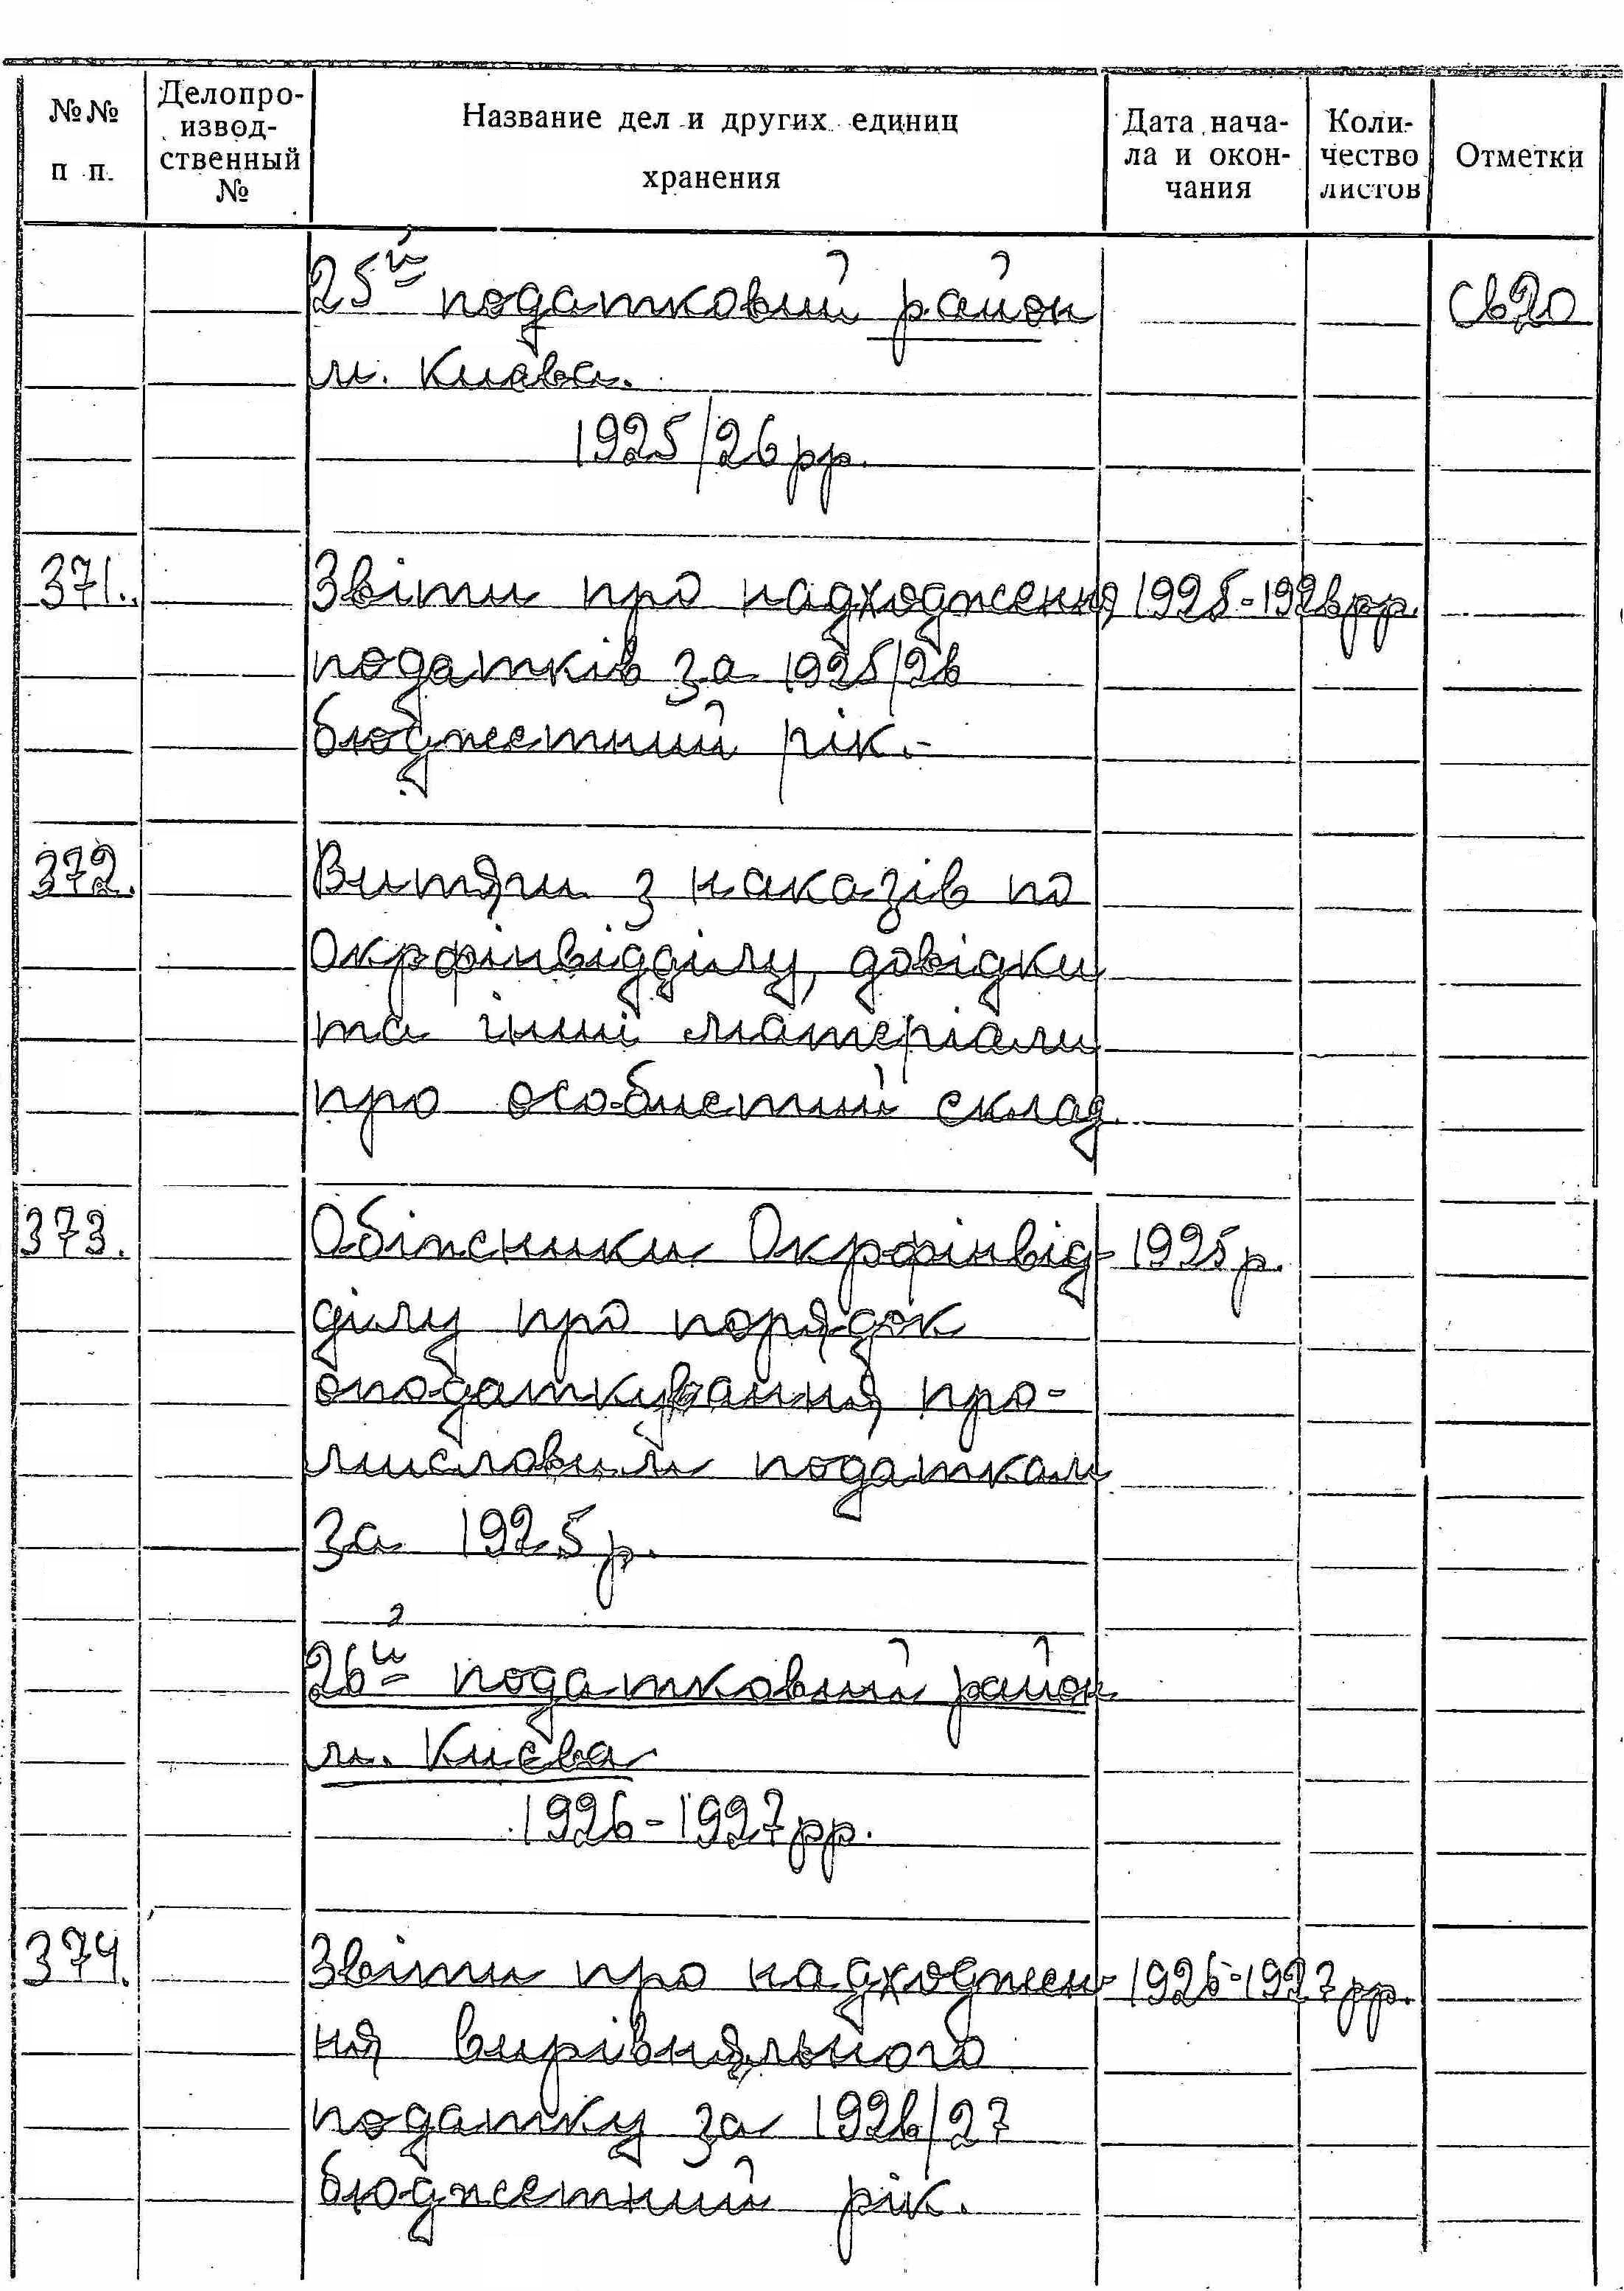 №№ п п.
Делопро-
извод-
ственный
№
Название дел и других единиц
хранения
Дата нача-
ла и окон-
чания
Коли-
чество
листов
Отметки
25й податковий район
м. Києва.
1925/26 рр.
371. Звіти про надходження 1925-1926 рр.
податків за 1925/26
бюджетний рік.-
372. Витяги з наказів по
Окрфінвідділу, довідки
та інші матеріали
про особистий склад.
373. Обіжники Окрфінвід- 1925 р.
ділу про порядок
оподаткування про-
мисловим податком
за 1925 р.
26й податковий район
м. Києва
1926-1927 рр.
374. Звіти про надходжен- 1926-1927 рр.
ня вирівняльного
податку за 1926/27
бюджетний рік.